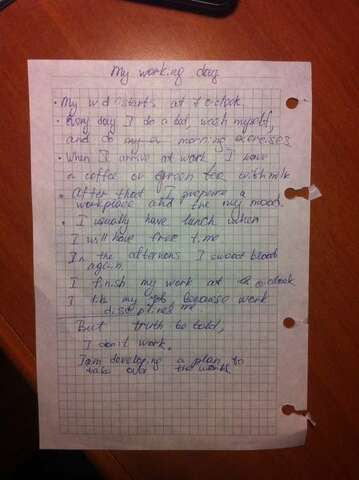 My working day
• My w d starts at 7 o'clock.
• Every day I do a bed, wash myself,
and do my morning exercises
• When I arrive at work, I have
a coffee or green tea with milk
• After that I prepare a
workplace and the my mood.
• I usually have lunch when
I will have free time
In the afternoons I sweed blood
again.
I finish my work at 8 o'clock
I like my job because work
disciplines me
But truth be told,
I don't work.
I am developing a plan to
take over the world.